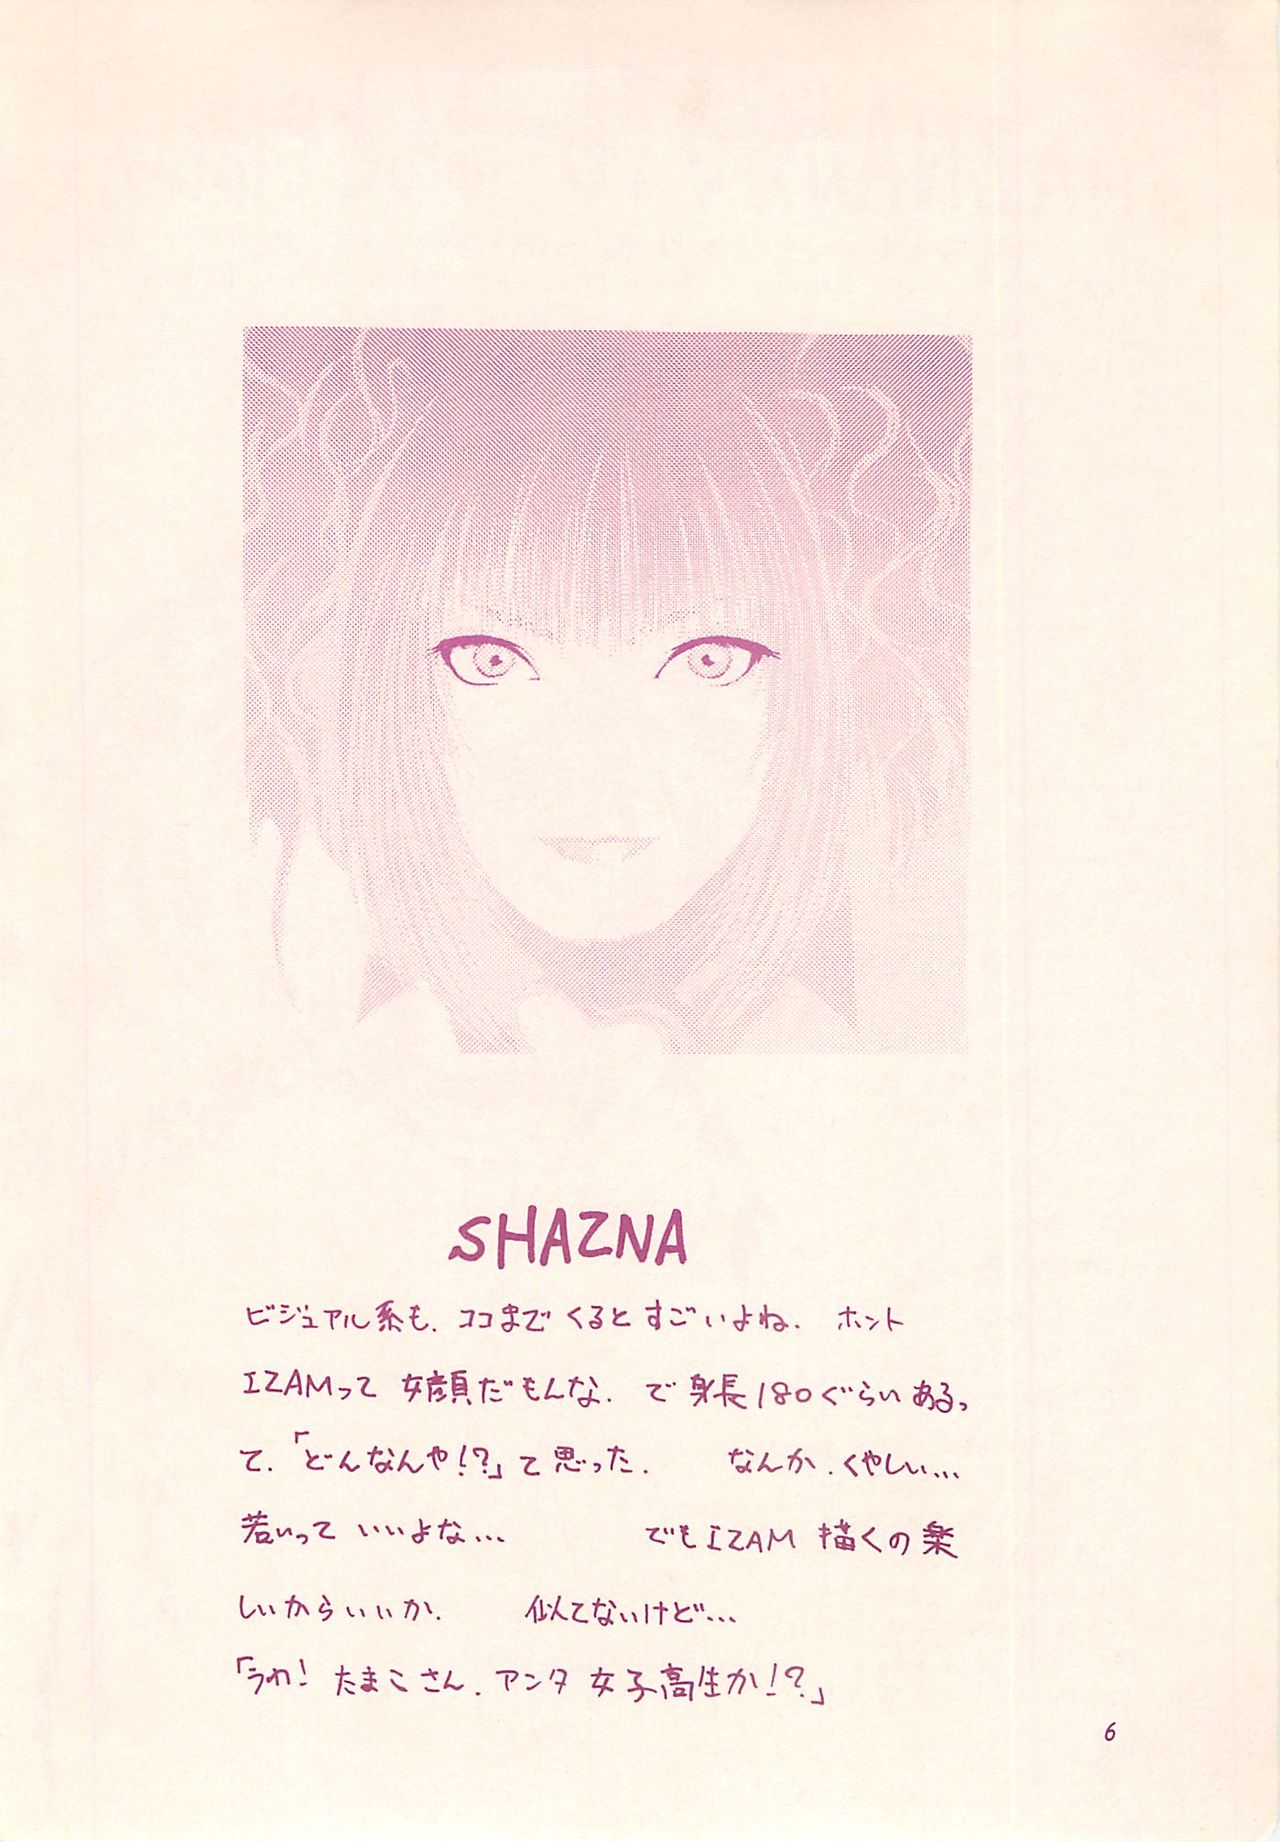 SHAZNA
ビジュアル系も、ココまでくるとすごいよね、 ホント
IZAMって 女顔だもんな、 で身長180ぐらいあるっ
て、「どんなんや!?」て思った、 なんか、くやしい…
若いって いいよな… でもIZAM 描くの楽
しいからいいか、 似てないけど…
「うわ! たまこさん、アンタ 女子高生か!?」
6